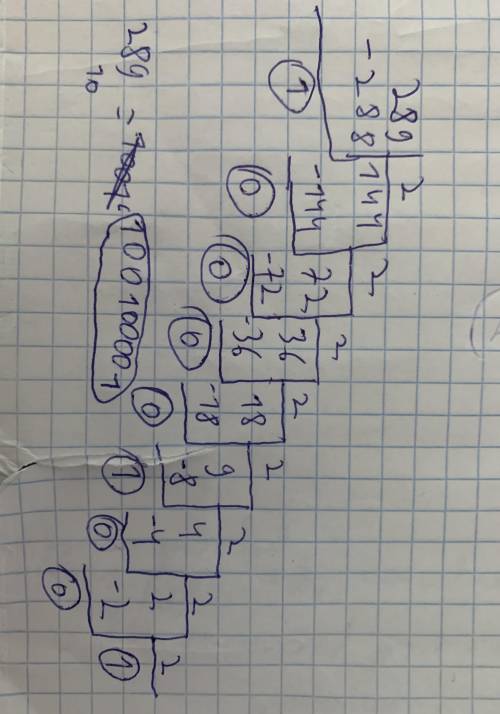 289 2
-288 144 2
1 -144 72 2
0 -72 36 2
0 -36 18 2
0 -18 9 2
0 -8 4 2
1 -4 2 2
0 -2 1
0
289₁₀ = 100100001